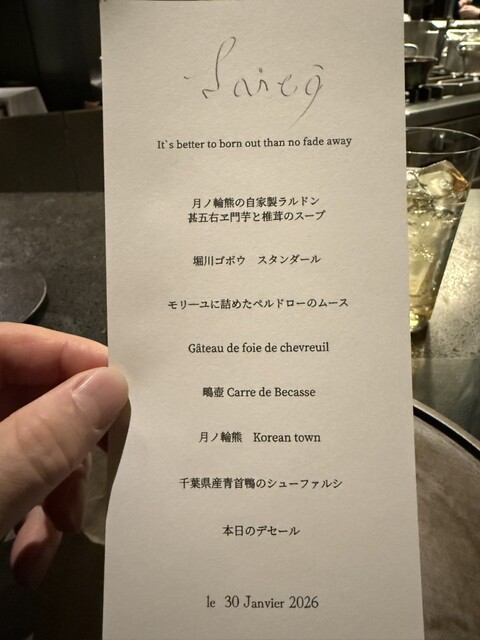 It`s better to born out than no fade away
月ノ輪熊の自家製ラルドン
甚五右ヱ門芋と椎茸のスープ
堀川ゴボウ スタンダール
モリーユに詰めたペルドローのムース
Gâteau de foie de chevreuil
鴫壺 Carre de Becasse
月ノ輪熊 Korean town
千葉県産青首鴨のシューファルシ
本日のデセール
le 30 Janvier 2026